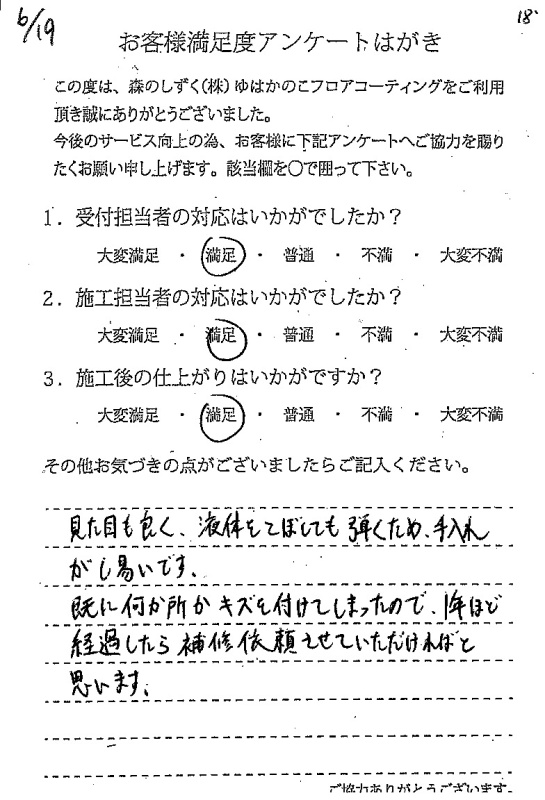 6/19
18
お客様満足度アンケートはがき
この度は、森のしずく(株)ゆはかのこフロアコーティングをご利用
頂き誠にありがとうございました。
今後のサービス向上の為、お客様に下記アンケートへご協力を賜り
たくお願い申し上げます。該当欄を○で囲って下さい。
1．受付担当者の対応はいかがでしたか？
大変満足 ・ 満足 ・ 普通 ・ 不満 ・ 大変不満
2．施工担当者の対応はいかがでしたか？
大変満足 ・ 満足 ・ 普通 ・ 不満 ・ 大変不満
3．施工後の仕上がりはいかがですか？
大変満足 ・ 満足 ・ 普通 ・ 不満 ・ 大変不満
その他お気づきの点がございましたらご記入ください。
見た目も良く、液体をこぼしても弾くため、手入れ
がし易いです。
既に何か所かキズを付けてしまったので、1年ほど
経過したら補修依頼させていただければと
思います。
ご協力ありがとうございます。